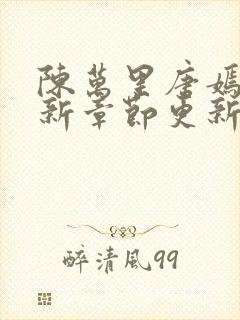 陳萬里唐嫣
新章節更新
醉清風99